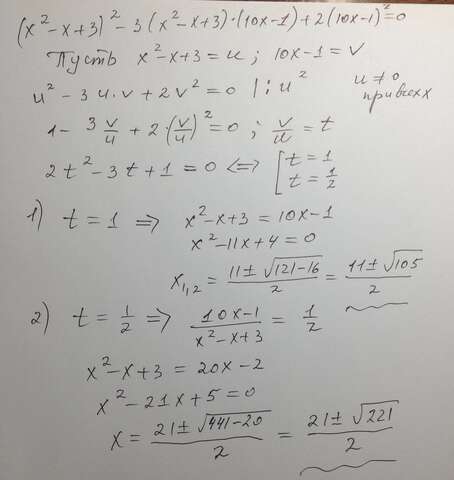 (x² - x + 3)² - 3(x² - x + 3)·(10x - 1) + 2(10x - 1)² = 0
Пусть x² - x + 3 = u ; 10x - 1 = v
u² - 3u·v + 2v² = 0 |: u² u ≠ 0
при всех x
1 - 3 v/u + 2·(v/u)² = 0 ; v/u = t
2t² - 3t + 1 = 0 <=> [ t = 1
t = 1/2
1) t = 1 => x² - x + 3 = 10x - 1
x² - 11x + 4 = 0
x₁,₂ = (11 ± √(121 - 16))/2 = (11 ± √105)/2
2) t = 1/2 => (10x - 1)/(x² - x + 3) = 1/2
x² - x + 3 = 20x - 2
x² - 21x + 5 = 0
x = (21 ± √(441 - 20))/2 = (21 ± √221)/2